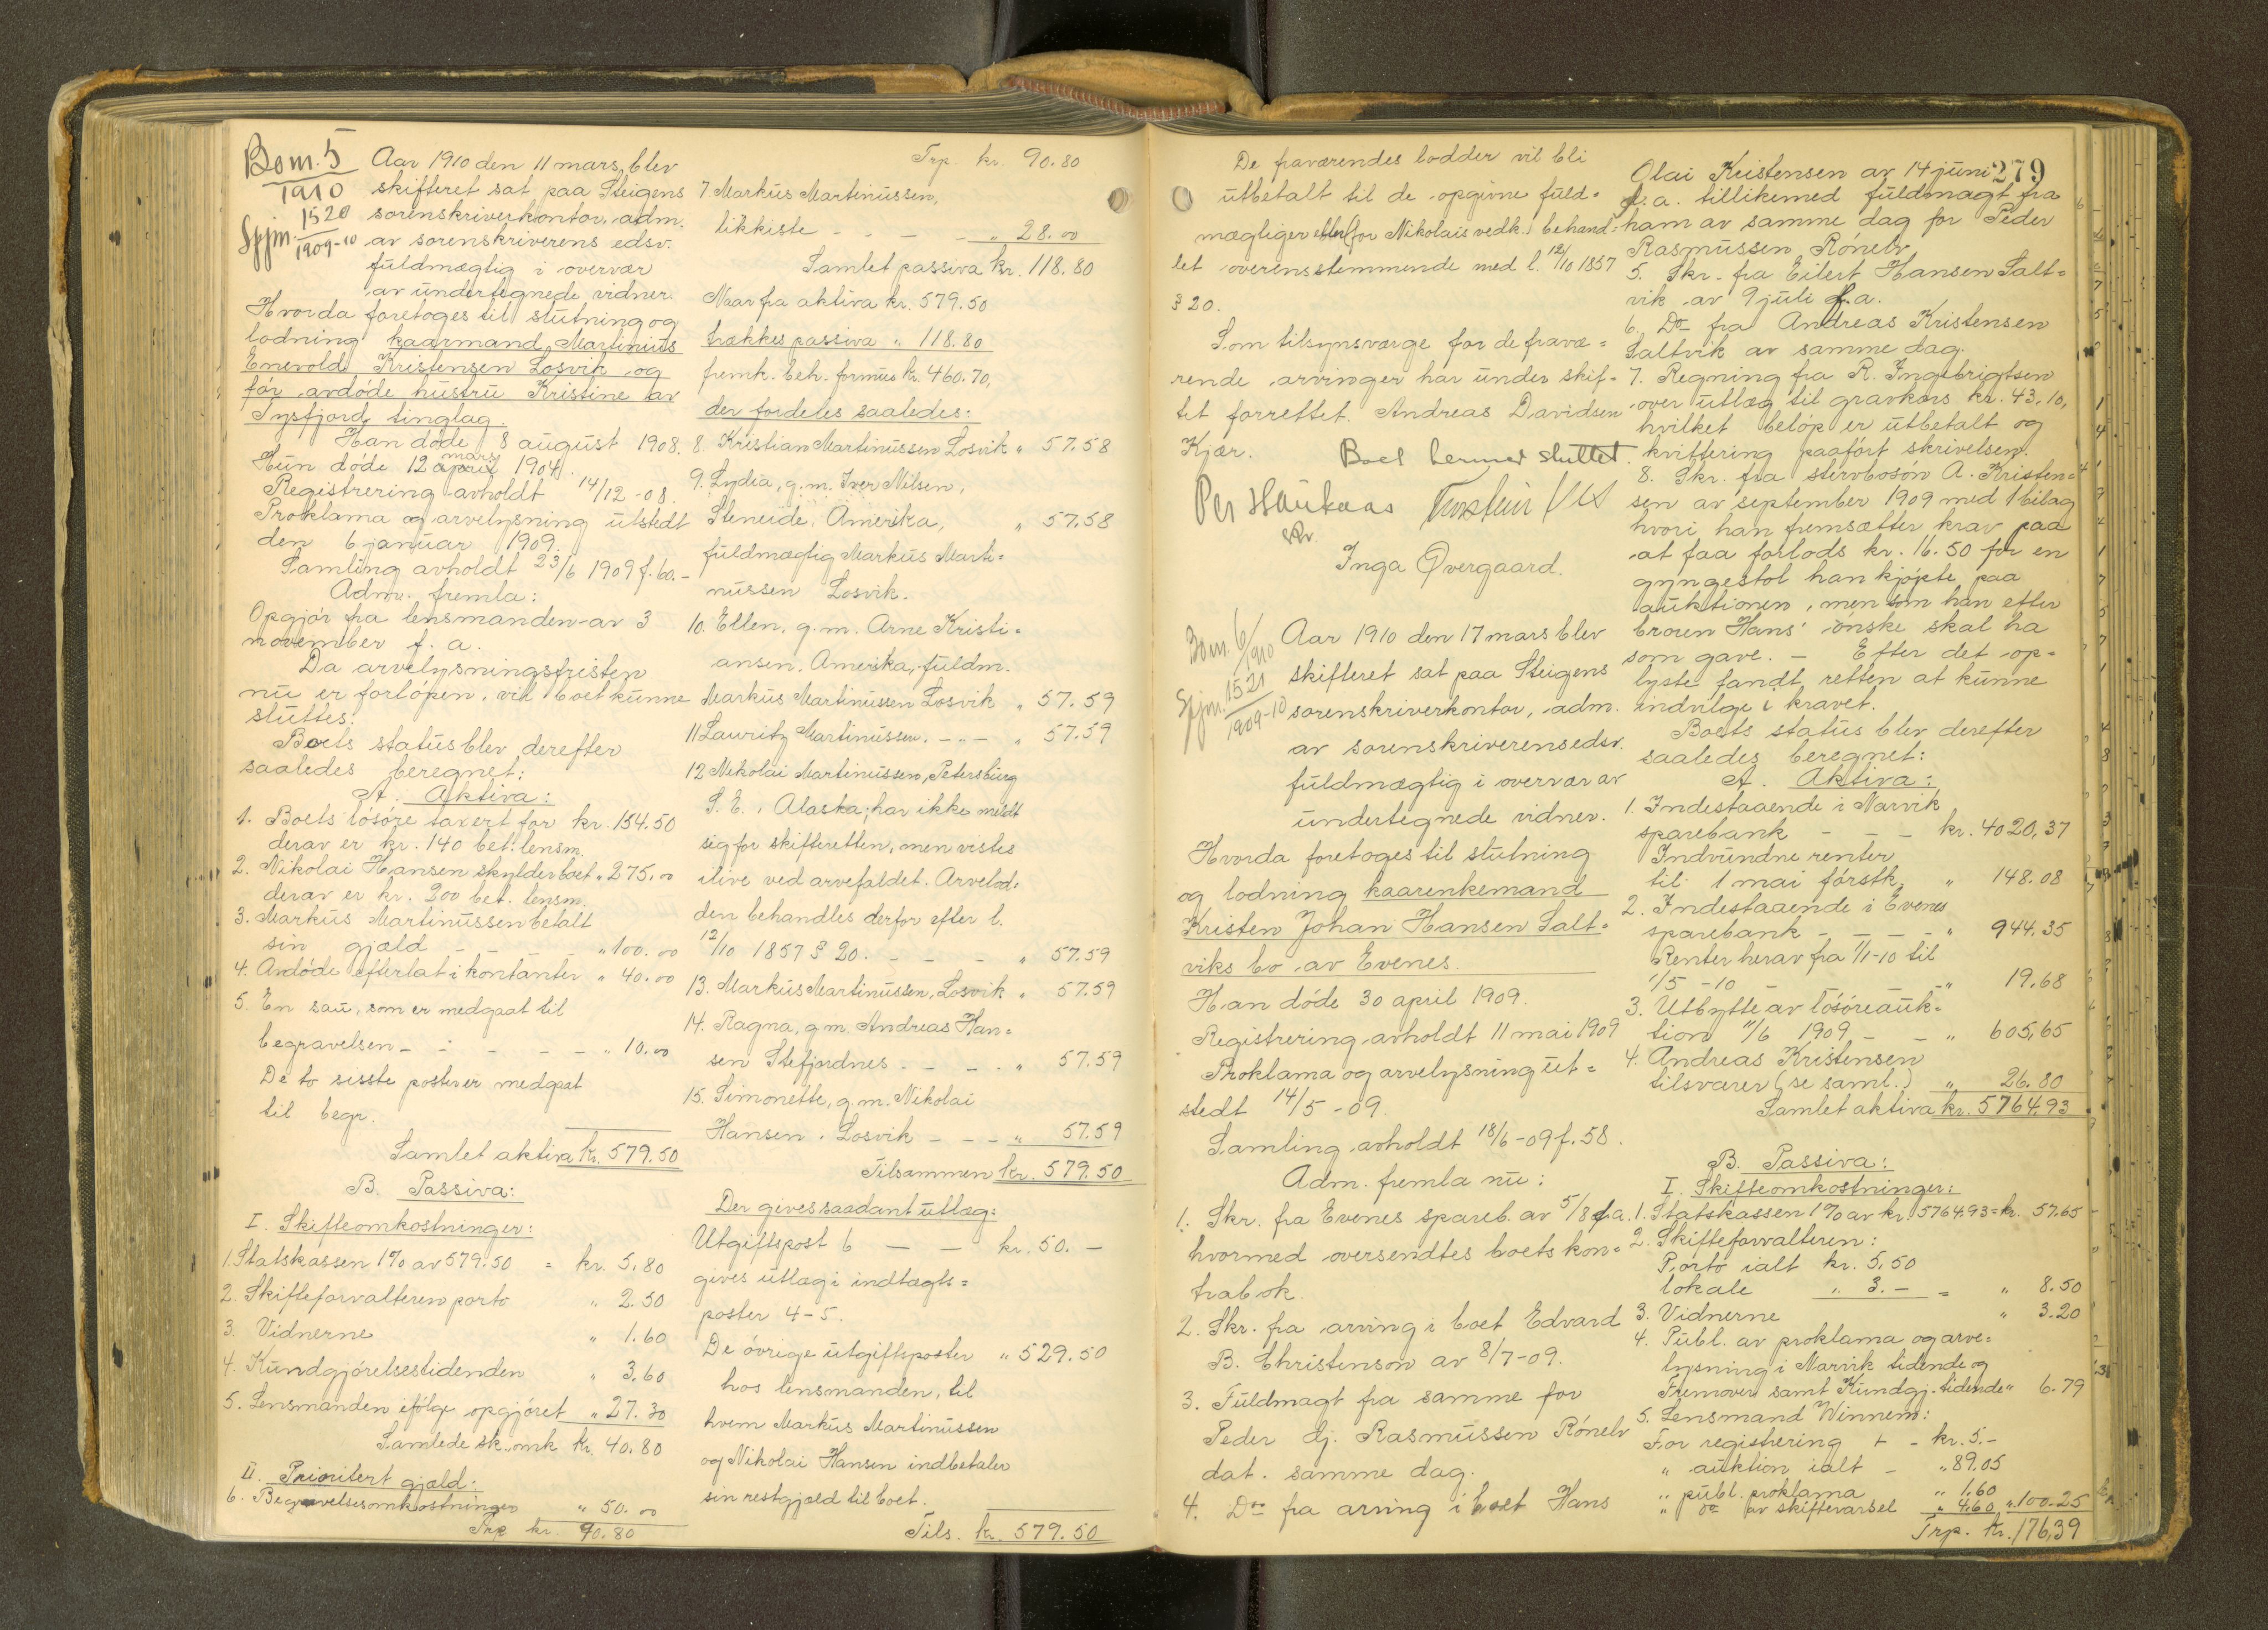 Bom. 5
1910
Spjm. 1520
1909-10
Aar 1910 den 11 mars, blev
skifteret sat paa Steigens
sorenskriverkontor, adm.
av sorenskriverens edsv.
fuldmægtig i overvær
av undertegnede vidner.
Hvorda foretoges til slutning og
lodning kaarmand Martinius
Enevold Kristensen Losvik og
før avdøde hustru Kristine av
Tysfjord tinglag.
Han døde 8 august 1908.
mars
Hun døde 12 april 1904.
Registrering avholdt 14/12-08.
Proklama og arvelysning utstedt
den 6 januar 1909.
Samling avholdt 23/6 1909 f. 60.-
Adm. fremla:
Opgjør fra lensmanden av 3
november f. a.
Da arvelysningsfristen
nu er forløpen, vil boet kunne
sluttes.
Boets status blev derefter
saaledes beregnet:
A. Aktiva:
1. Boets løsøre taxert for kr. 154.50
derav er kr. 140 bet. lensm.
2. Nikolai Hansen skylder boet " 275.00
derav er kr. 200 bet. lensm.
3. Markus Martinussen betalt
sin gjæld - - " 100.00
4. Avdøde efterlat i kontanter " 40.00
5. En sau, som er medgaat til
begravelsen - - - - - " 10.00
De to sisste poster er medgaat
til begr.
Samlet aktiva kr. 579.50
B. Passiva:
I. Skifteomkostninger:
1. Statskassen 1% av 579.50 = kr. 5.80
2. Skifteforvalteren porto " 2.50
3. Vidnerne " 1.60
4. Kundgjørelsestidenden " 3.60
5. Lensmanden ifølge opgjøret " 27.30
Samlede sk. omk kr. 40.80
II. Prioritert gjæld:
6. Begravelsesomkostninger " 50.00
Trp kr. 90.80
Trp. kr. 90.80
7 Markus Martinussen,
likkiste - - - - " 28.00
Samlet passiva kr. 118.80
Naar fra aktiva kr. 579.50
trækkes passiva " 118.80
fremk. beh. formue kr. 460.70,
der fordeles saaledes:
8 Kristian Martinussen Losvik " 57.58
9. Lydia, g. m. Iver Nilsen,
Steneide, Amerika, " 57.58
fuldmægtig Markus Marti=
nussen Losvik.
10. Ellen, g. m. Arne Kristi=
ansen, Amerika, fuldm.
Markus Martinussen Losvik " 57.59
11 Lauritz Martinussen. - - - " 57.59
12 Nikolai Martinussen, Petersburg
S. E., Alaska; har ikke meldt
sig for skifteretten, men vistes
ilive ved arvefaldet. Arvelod=
den behandles derfor efter l.
12/10 1857 § 20. - - - " 57.59
13. Markus Martinussen, Losvik " 57.59
14. Ragna, g m. Andreas Han=
sen Stefjordnes - - - - " 57.59
15. Simonette, g. m. Nikolai
Hansen, Losvik - - - " 57.59
Tilsammen kr. 579.50
Der gives saadant utlæg:
Utgiftspost 6 - - kr. 50. -
gives utlæg i indtægts=
poster 4-5.
De øvrige utgiftsposter " 529.50
hos lensmanden, til
hvem Markus Martinussen
og Nikolai Hansen indbetaler
sin restgjæld til boet.
Tils. kr. 579.50
De fraværendes lodder vil bli
utbetalt til de opgivne fuld=
mægtiger eller (for Nikolais vedk.) behand=
let overensstemmende med l. 12/10 1857
§ 20.
Som tilsynsværge for de fravæ=
rende arvinger har under skif=
tet forrettet Andreas Davidsen
Kjær.
Boet hermed sluttet.
Per Haukaas
Inga Øvergaard.
Bom. 6/1910
Spjm. 1521
1909-10
Aar 1910 den 17 mars blev
skifteret sat paa Steigens
sorenskriverkontor, adm.
av sorenskriverens edsv.
fuldmægtig i overvær av
undertegnede vidner.
Hvorda foretoges til slutning
og lodning kaarenkemand
Kristen Johan Hansen Salt=
viks bo av Evenes.
Han døde 30 april 1909.
Registrering avholdt 11 mai 1909
Proklama og arvelysning ut=
stedt 14/5-09.
Samling avholdt 18/6-09 f. 58.
Adm. fremla nu:
1. Skr. fra Evenes spareb. av 5/8 f. a.
hvormed oversendtes boets kon=
trabok.
2. Skr. fra arving i boet Edvard
B. Christenson av 8/7-09.
3. Fuldmagt fra samme for
Peder Aj. Rasmussen Rønelv
dat. samme dag.
4. Do fra arving i boet Hans
279
Olai Kristensen av 14 juni
f. a. tillikemed fuldmagt fra
ham av samme dag for Peder
Rasmussen Rønelv
5. Skr. fra Eilert Hansen Salt=
vik av 9 juli f. a.
6. Do fra Andreas Kristensen
Saltvik av samme dag.
7. Regning fra R. Ingebrigtsen
over utlæg til gravkors kr. 43.10,
hvilket beløp er utbetalt og
kvittering paaført skrivelsen.
8. Skr. fra stervbosøn A. Kristen=
sen av september 1909 med 1 bilag
hvori han fremsætter krav paa
at faa forlods kr. 16.50 for en
gyngestol han kjøpte paa
auktionen, men som han efter
broren Hans' ønske skal ha
som gave. - Efter det op=
lyste fandt retten at kunne
indvilge i kravet.
Boets status blev derefter
saaledes beregnet:
A. Aktiva:
1. Indestaaende i Narvik
sparebank - - - kr. 4020,37
Indvundne renter
til 1 mai førstk. " 148.08
2. Indestaaende i Evenes
sparebank - - - - " 944.35
Renter herav fra 1/1-10 til
1/5-10 - - " 19.68
3. Utbytte av løsøreauk=
tion 11/6 1909 - - " 605,65
4. Andreas Kristensen
tilsvarer (se saml.) " 26.80
Samlet aktiva kr. 5764.93
B. Passiva:
I. Skifteomkostninger:
1. Statskassen 1% av kr. 5764.93 = kr. 57.65
2. Skifteforvalteren:
Porto ialt kr. 5,50
lokale " 3.- = " 8.50
3. Vidnerne " 3.20
4. Publ. av proklama og arve=
lysning i Narvik tidende og
Fremover samt Kundgj. tidende " 6.79
5. Lensmand Winnem:
For registrering - - kr. 5.-
" auktion ialt - " 89.05
" publ. proklama " 1.60
" do av skiftevarsel " 4.60 " 100.25
Trp. kr. 176,39